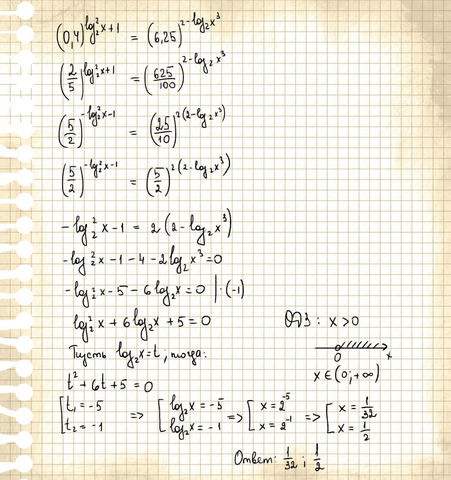 (0,4)^{log₂²x+1} = (6,25)^{2-log₂x³}
(2/5)^{log₂²x+1} = (625/100)^{2-log₂x³}
(5/2)^{-log₂²x-1} = (25/10)^{2(2-log₂x³)}
(5/2)^{-log₂²x-1} = (5/2)^{2(2-log₂x³)}
-log₂²x-1 = 2(2-log₂x³)
-log₂²x-1-4-2log₂x³=0
-log₂²x-5-6log₂x=0 |·(-1)
log₂²x+6log₂x+5=0
ОДЗ: x>0
Пусть log₂x=t, тогда:
0 x
x∈(0;+∞)
t²+6t+5=0
[t₁=-5 => [log₂x=-5 => [x=2⁻⁵ => [x=1/32
t₂=-1 log₂x=-1 x=2⁻¹ x=1/2
Ответ: 1/32; 1/2